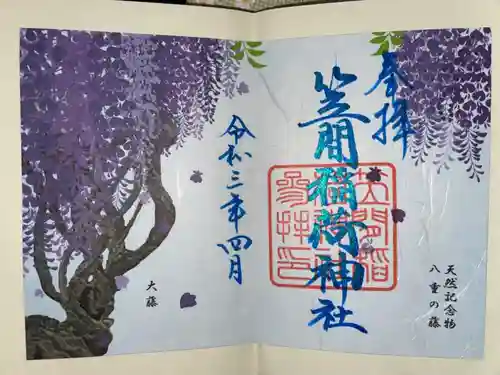 奉拝
天然記念物
八重の藤
笠間稲荷神社
笠間稲
参拝印
令和三年四月
大藤